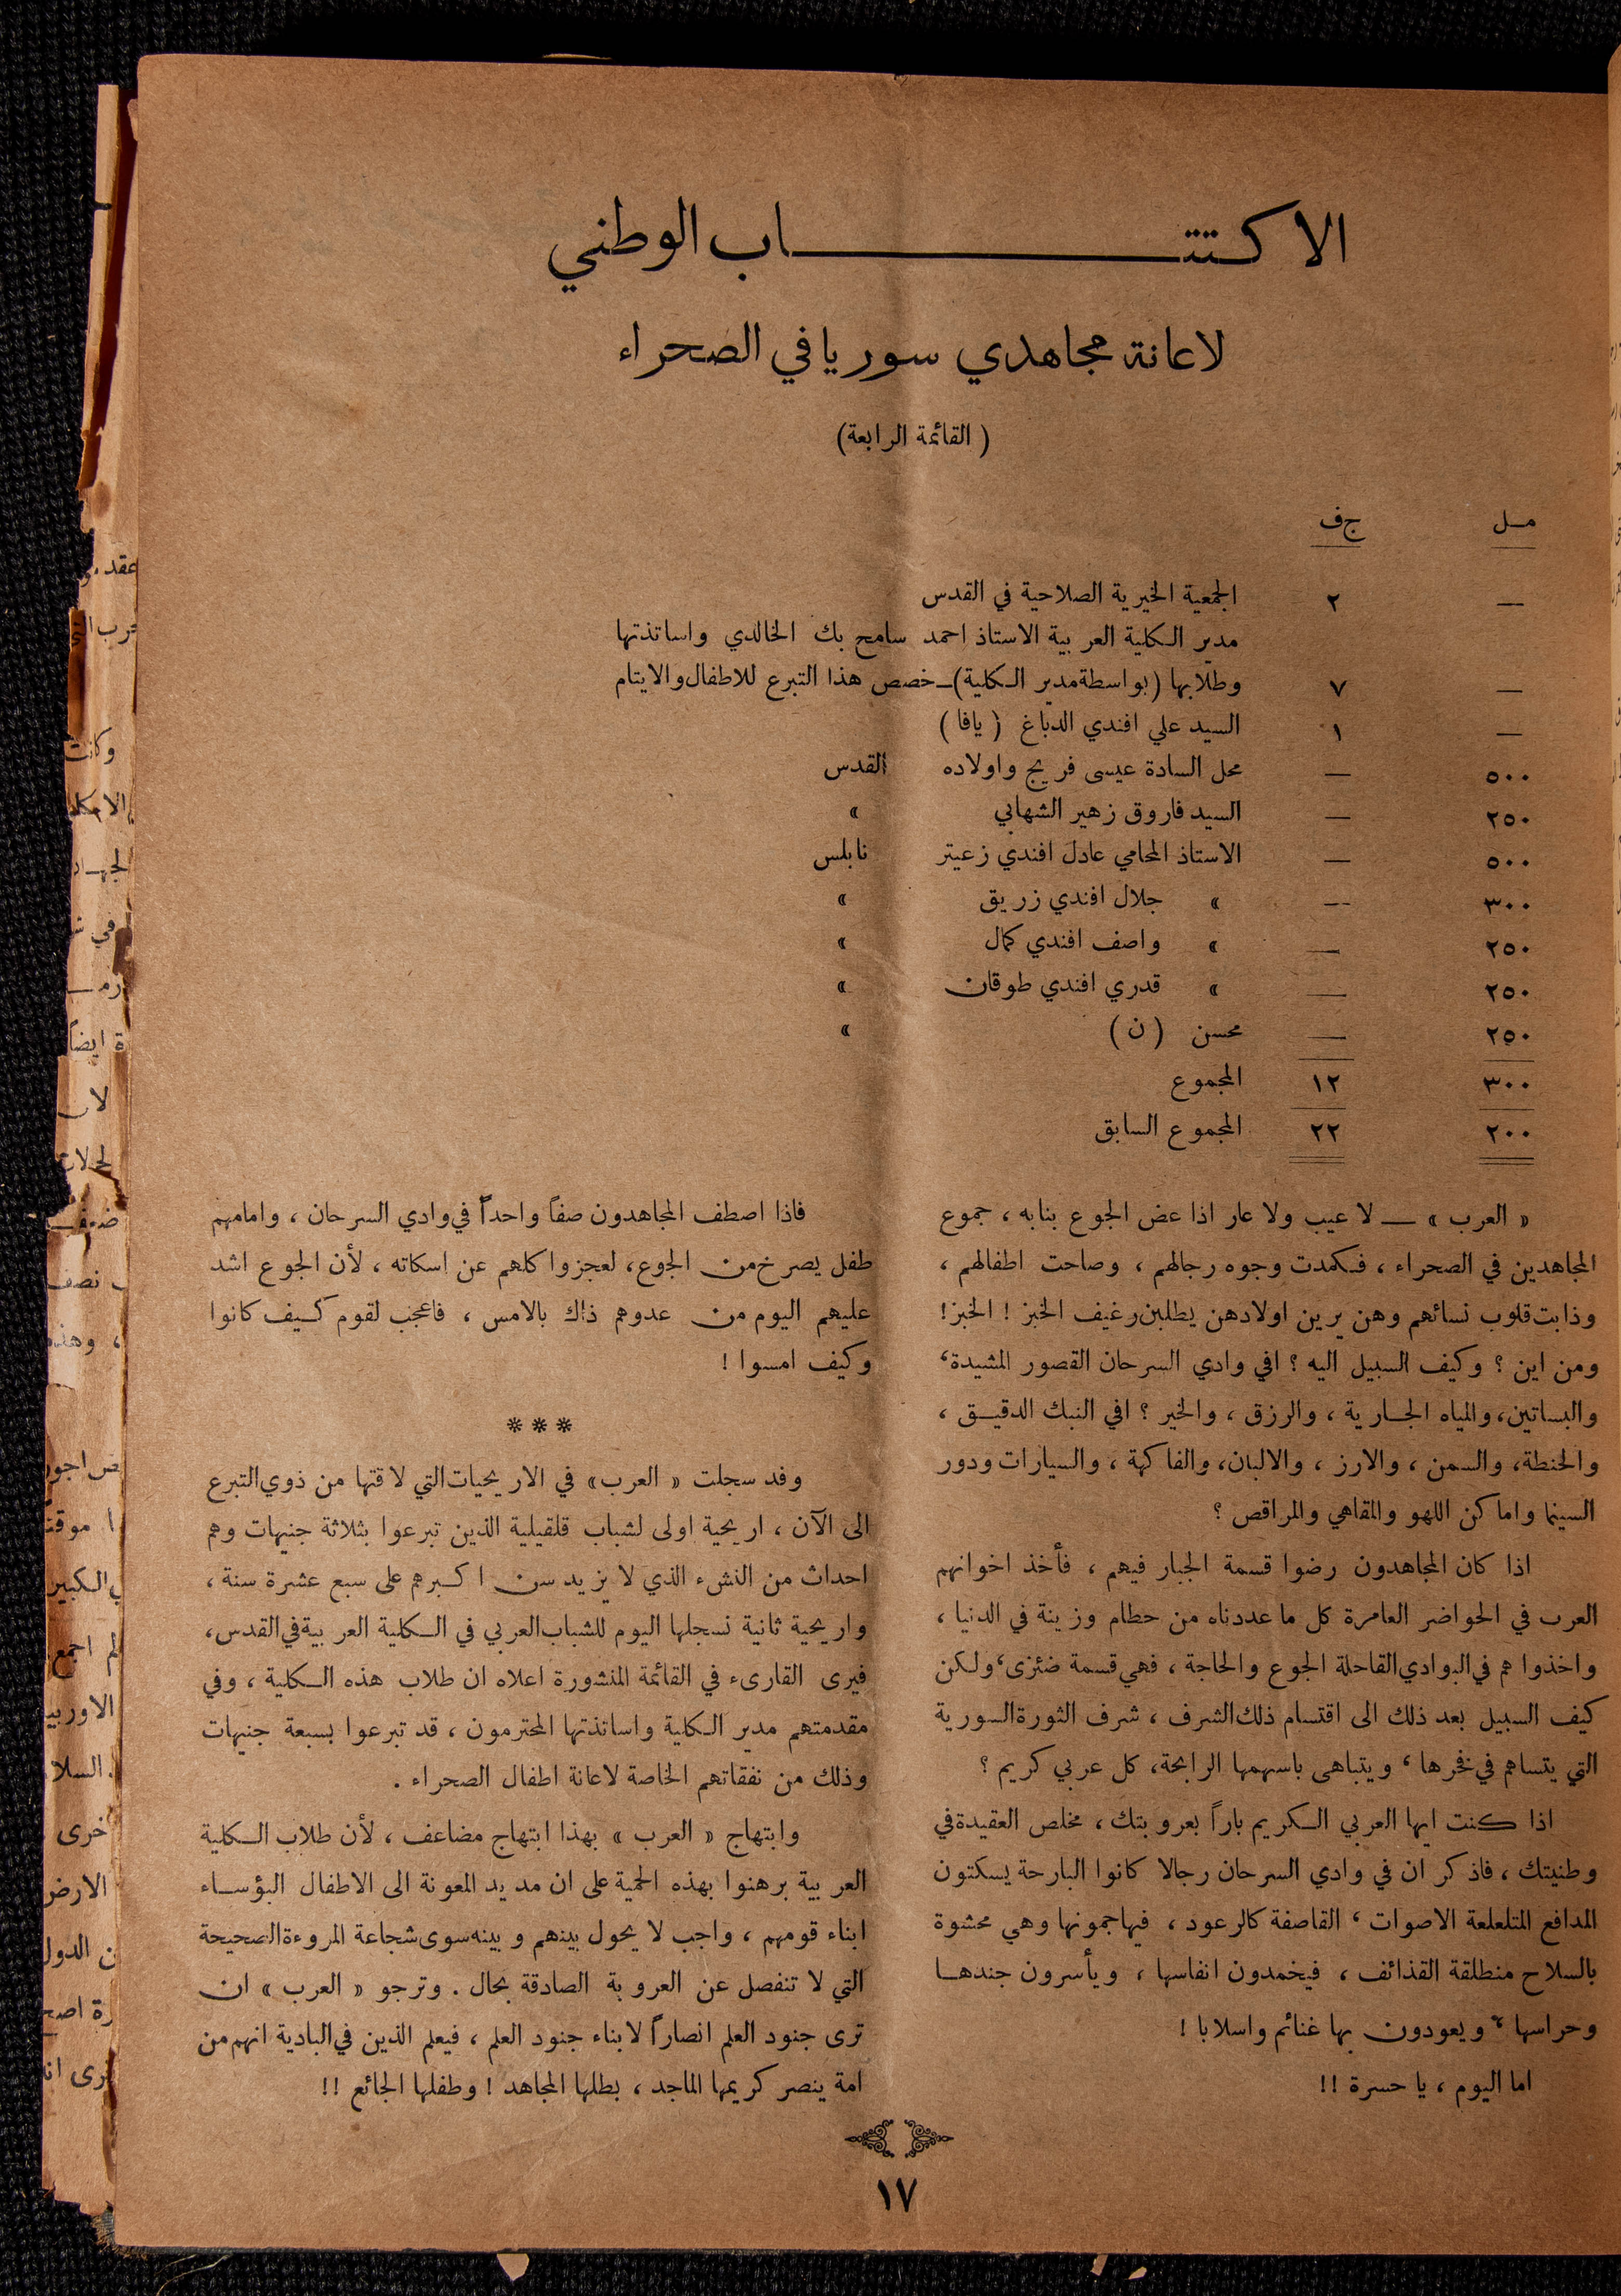 الاكتتاب الوطني
لاعانة مجاهدي سوريا في الصحراء
( القائمة الرابعة )
مل ج ف
— ٢ الجمعية الخيرية الصلاحية في القدس
مدير الكلية العربية الاستاذ احمد سامح بك الخالدي واساتذتها
— ٧ وطلابها (بواسطة مدير الكلية) — خصص هذا التبرع للاطفال والايتام
— ١ السيد علي افندي الدباغ ( يافا )
٥٠٠ — محل السادة عيسى فريج واولاده القدس
٢٥٠ — السيد فاروق زهير الشهابي »
٥٠٠ — الاستاذ المحامي عادل افندي زعيتر نابلس
٣٠٠ — » جلال افندي زريق »
٢٥٠ — » واصف افندي كمال »
٢٥٠ — » قدري افندي طوقان »
٢٥٠ — محسن ( ن ) »
٣٠٠ ١٢ المجموع
٢٠٠ ٢٢ المجموع السابق
« العرب » — لا عيب ولا عار اذا عض الجوع بنابه ، جموع
المجاهدين في الصحراء ، فكمدت وجوه رجالهم ، وصاحت اطفالهم ،
وذابت قلوب نسائهم وهن يرين اولادهن يطلبن رغيف الخبز ! الخبز !
ومن اين ؟ وكيف السبيل اليه ؟ افي وادي السرحان القصور المشيدة ،
والبساتين ، والمياه الجارية ، والرزق ، والخير ؟ افي النبك الدقيق ،
والحنطة ، والسمن ، والارز ، والالبان ، والفاكهة ، والسيارات ودور
السينما واماكن اللهو والمقاهي والمراقص ؟
اذا كان المجاهدون رضوا قسمة الجبار فيهم ، فأخذ اخوانهم
العرب في الحواضر العامرة كل ما عددناه من حطام وزينة في الدنيا ،
واخذوا هم في البوادي القاحلة الجوع والحاجة ، فهي قسمة ضئزى ، ولكن
كيف السبيل بعد ذلك الى اقتسام ذلك الشرف ، شرف الثورة السورية
التي يتساهم في فخرها ، ويتباهى باسهمها الرابحة ، كل عربي كريم ؟
اذا كنت ايها العربي الكريم باراً بعروبتك ، مخلص العقيدة في
وطنيتك ، فاذكر ان في وادي السرحان رجالا كانوا البارحة يسكتون
المدافع المتلعلعة الاصوات ، القاصفة كالرعود ، فيهاجمونها وهي محشوة
بالسلاح منطلقة القذائف ، فيخمدون انفاسها ، ويأسرون جندها
وحراسها ، ويعودون بها غنائم واسلابا !
اما اليوم ، يا حسرة !!
فاذا اصطف المجاهدون صفاً واحداً في وادي السرحان ، وامامهم
طفل يصرخ من الجوع ، لعجزوا كلهم عن اسكاته ، لأن الجوع اشد
عليهم اليوم من عدوهم ذاك بالامس ، فاعجب لقوم كيف كانوا
وكيف امسوا !
***
وقد سجلت « العرب » في الاريحيات التي لاقتها من ذوي التبرع
الى الآن ، اريحية اولى لشباب قلقيلية الذين تبرعوا بثلاثة جنيهات وهم
احداث من النشء الذي لا يزيد سن اكبرهم على سبع عشرة سنة ،
واريحية ثانية نسجلها اليوم للشباب العربي في الكلية العربية في القدس ،
فيرى القارىء في القائمة المنشورة اعلاه ان طلاب هذه الكلية ، وفي
مقدمتهم مدير الكلية واساتذتها المحترمون ، قد تبرعوا بسبعة جنيهات
وذلك من نفقاتهم الخاصة لاعانة اطفال الصحراء .
وابتهاج « العرب » بهذا ابتهاج مضاعف ، لأن طلاب الكلية
العربية برهنوا بهذه الحمية على ان مد يد المعونة الى الاطفال البؤساء
ابناء قومهم ، واجب لا يحول بينهم وبينه سوى شجاعة المروءة الصحيحة
التي لا تنفصل عن العروبة الصادقة بحال . وترجو « العرب » ان
ترى جنود العلم انصاراً لابناء جنود العلم ، فيعلم الذين في البادية انهم من
امة ينصر كريمها الماجد ، بطلها المجاهد ! وطفلها الجائع !!
١٧